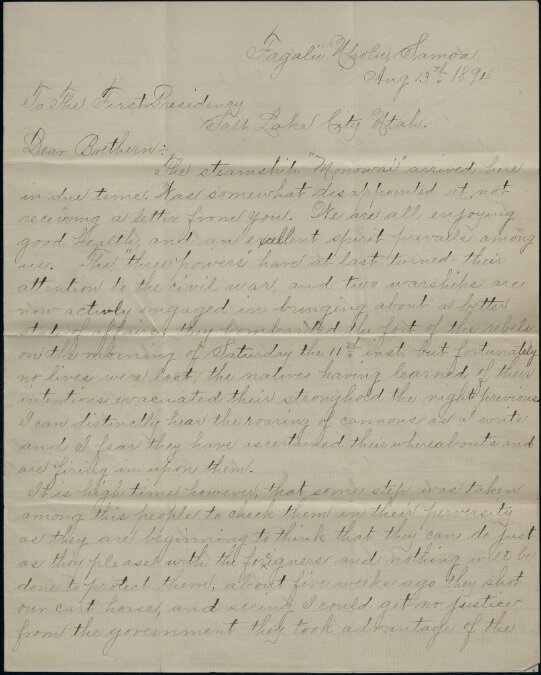 Fagalii Upolu, Samoa
Aug 13th 1894
To The First Presidency
Salt Lake City Utah.
Dear Brethern:-
The steamship "Monowai" arrived here
in due time. Was somewhat disappointed at not
receiving a letter from you. We are all enjoying
good health, and an excellent spirit prevails among
us. The three "powers" have at last turned their
attention to the civil war, and two warships are
now activly engaged in bringing about a better
state of affairs. they bombarded the fort of the rebels
on the morning of Saturday the 11th inst. but fortunately
no lives were lost, the natives having learned of their
intentions evacuated their stronghold the night previous
I can distinctly hear the roaring of cannons as I write
and I fear they have ascertained their whereabouts and
are firing in upon them.
It is high time however, that some step was taken
among this people to check them in their perversity
as they are beginning to think that they can do just
as they please with the foreigners and nothing will be
done to protect them. about five weeks ago they shot
our cart horse, and seeing I could get no justice
from the government they took advantage of the